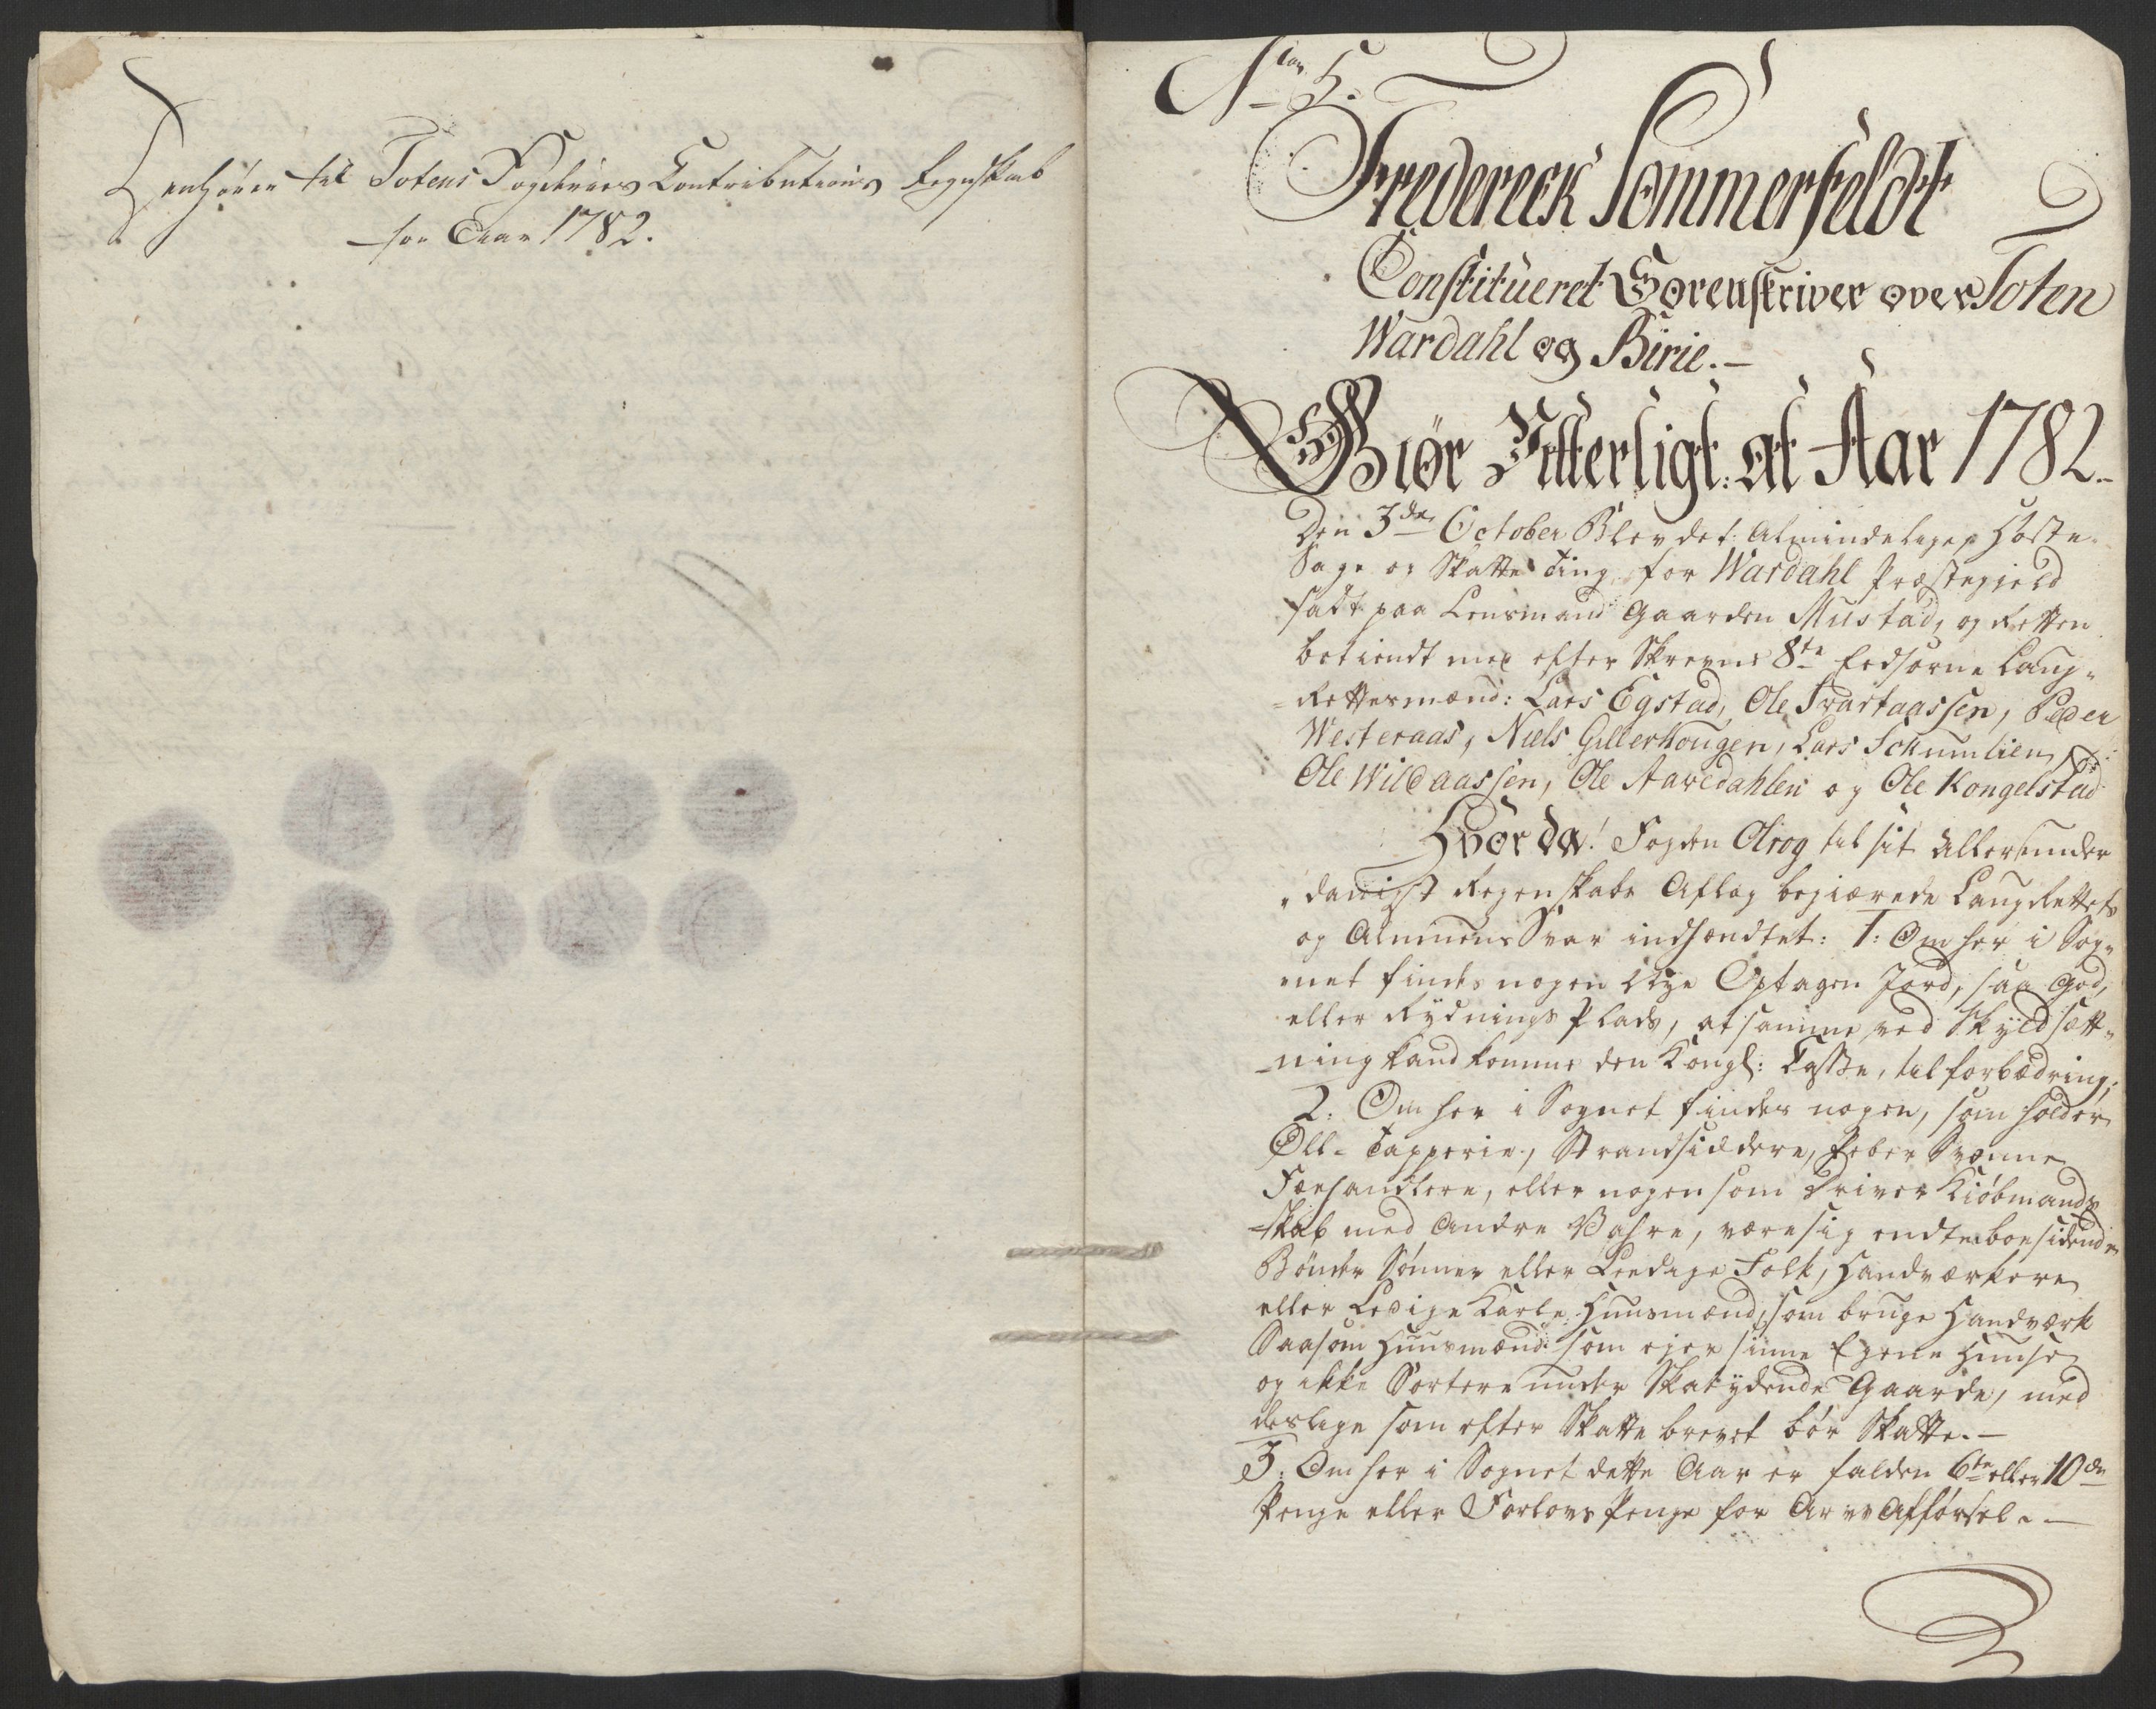 Henhører til Totens Fogderies Contributions Regnskab
for Aar 1782.
No 5.
Fredereck Sommerfeldt
Constitueret Sorenskriver over Toten
Wardahl og Birie.
Giør Vitterligt: at Aar 1782
Den 3de October Blev det Almindelige Høste
Sage og Skatte Ting for Wardahl Præstegield
satt paa Lensmand Gaarden Mustad, og Retten
betiendt med efter Skrevne 8te Eedsorne Laug-
Rettesmænd: Lars Egstad, Ole Svartaassen, Peder
Westeraas, Niels Gillerhougen, Lars Schumlien
Ole Wildaassen, Ole Aavedahlen og Ole Kongelstad
Hvor da! Fogden Olrog til sit Allerunder
danigst Regenskabs Aflæg begiærede Laug Rettets
og Almuens Svar indhændtet: 1: Om her i Sog-
net findes nogen Nye Optagen Jord, saa god,
eller Rydnings Plads, at samme ved Skyldsætt-
ning kand komme den Kongl: Casse, til forbedring;
2. Om her i Sognet findes nogen, som holder
Øll-Tapperie, Strandsiddere, Peber Svenne
Færhandlere, eller nogen som Driver Kiøbmand
skab med Andre Vahre, være sig endten boesidende
Bønder Sønner eller Leedige Folk, Handværkere
eller Ledige Karle Huusmænd, som bruge Handværk
Saasom Huusmænd som ejer sinne Egene Huuse
og ikke Sortere under Skatydende Gaarde, med
deslige som efter Skatte brevet bør Skatte.
3. Om her i Sognet dette Aar er falden 6te eller 10de
Penge eller Forlovs Penge for Arve Afførsel.